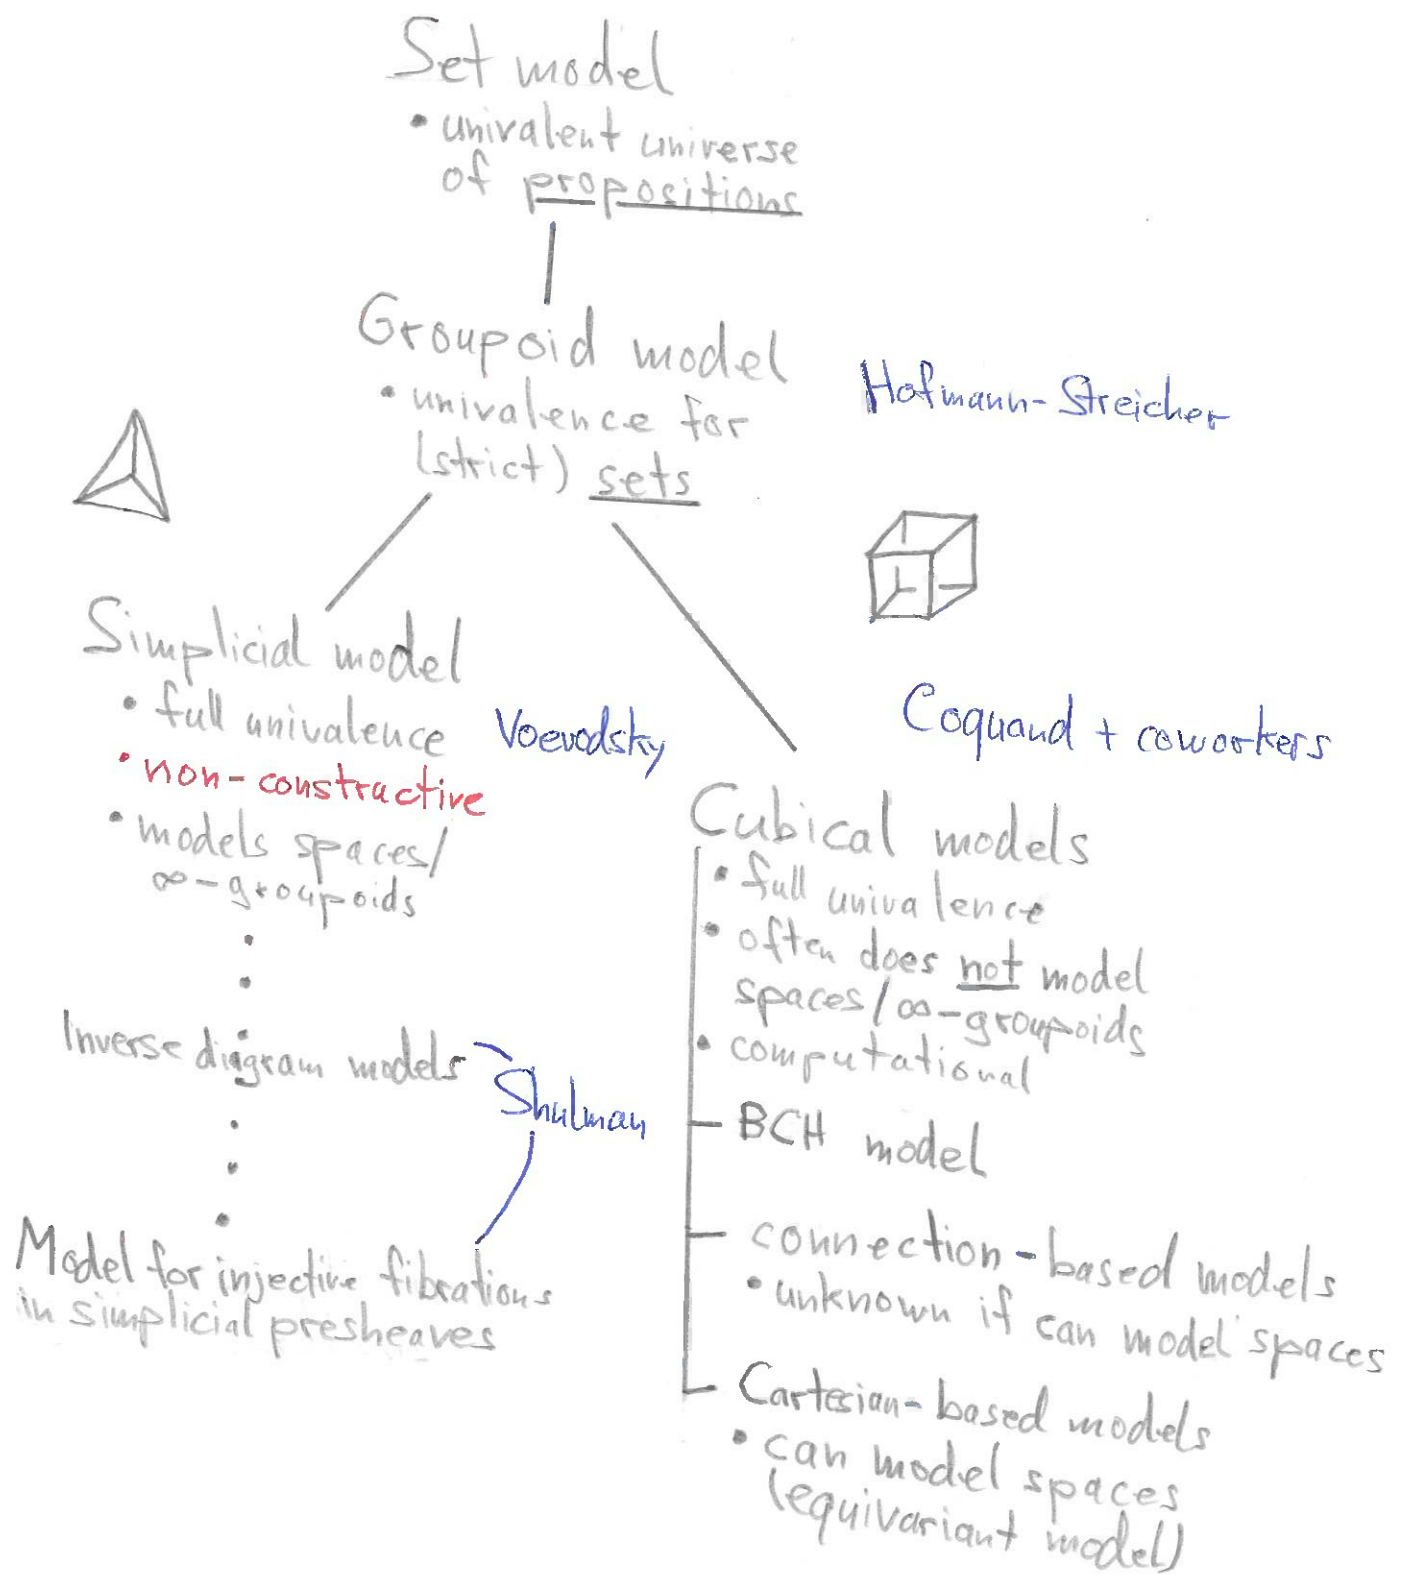 Set model
• univalent universe
of propositions
Groupoid model
• univalence for
(strict) sets
Hofmann-Streicher
Simplicial model
• full univalence
• non-constructive
• models spaces/
∞-groupoids
Voevodsky
Inverse diagram models
Shulman
Model for injective fibrations
in simplicial presheaves
Coquand + coworkers
Cubical models
• full univalence
• often does not model
spaces/∞-groupoids
• computational
BCH model
connection-based models
• unknown if can model spaces
Cartesian-based models
• can model spaces
(equivariant model)